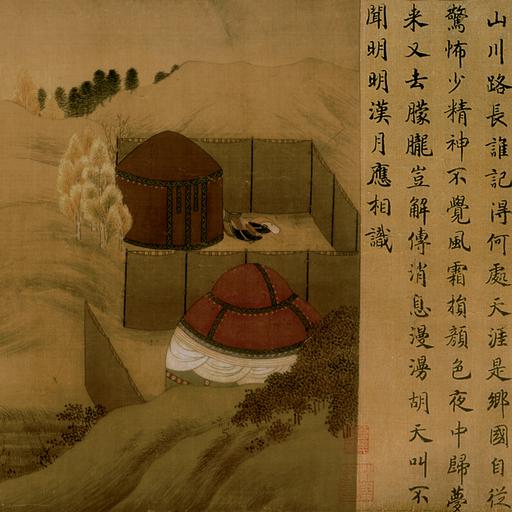 山川路長誰記得何處天涯是鄉國自從
驚怖少精神不覺風霜損顏色夜中歸夢
来又去朦朧豈解傳消息漫漫胡天叫不
聞明明漢月應相識